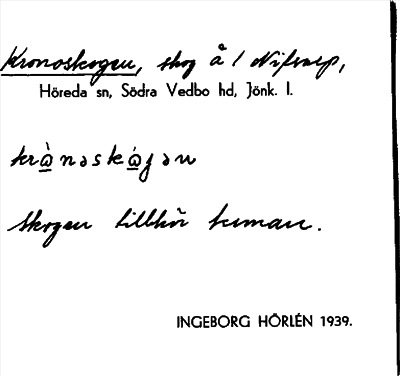 Kronoskogen, skog å 1 Nifvarp,
Höreda sn, Södra Vedbo hd, Jönk. l.
krὼnəskώgən
skogen tillhör kronan.
INGEBORG HÖRLÉN 1939.